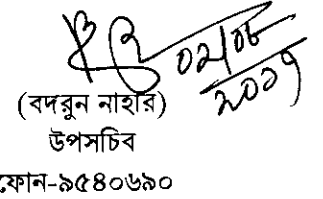 ০২/০৮
২০১৭
(বদরুন নাহার)
উপসচিব
ফোন-৯৫৪০৬৯০